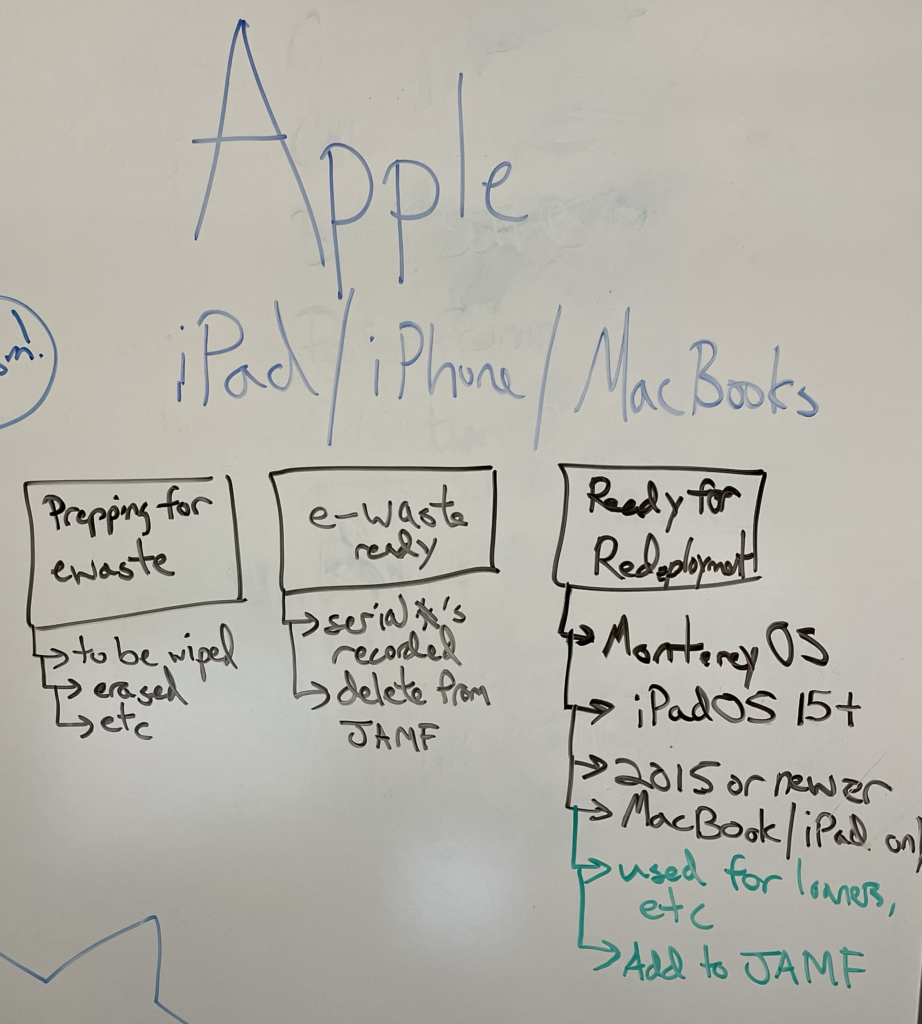 Apple
iPad/iPhone/MacBooks
Prepping for
ewaste
to be wiped
erased
etc
e-waste
ready
serial #'s
recorded
delete from
JAMF
Ready for
Redeployment
Monterey OS
iPadOS 15+
2015 or newer
MacBook/iPad
used for loaners,
etc
Add to JAMF